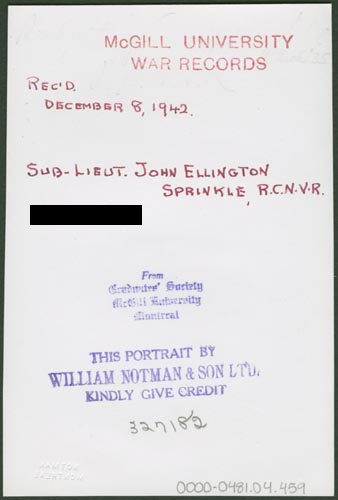 McGILL UNIVERSITY
WAR RECORDS
REC'D.
DECEMBER 8, 1942.
SUB-LIEUT. JOHN ELLINGTON
SPRINKLE, R.C.N.V.R.
From
Graduates' Society
McGill University
Montreal
THIS PORTRAIT BY
WILLIAM NOTMAN & SON LTD.
KINDLY GIVE CREDIT
327182
NOTMAN
MONTREAL
0000-0481.04.459